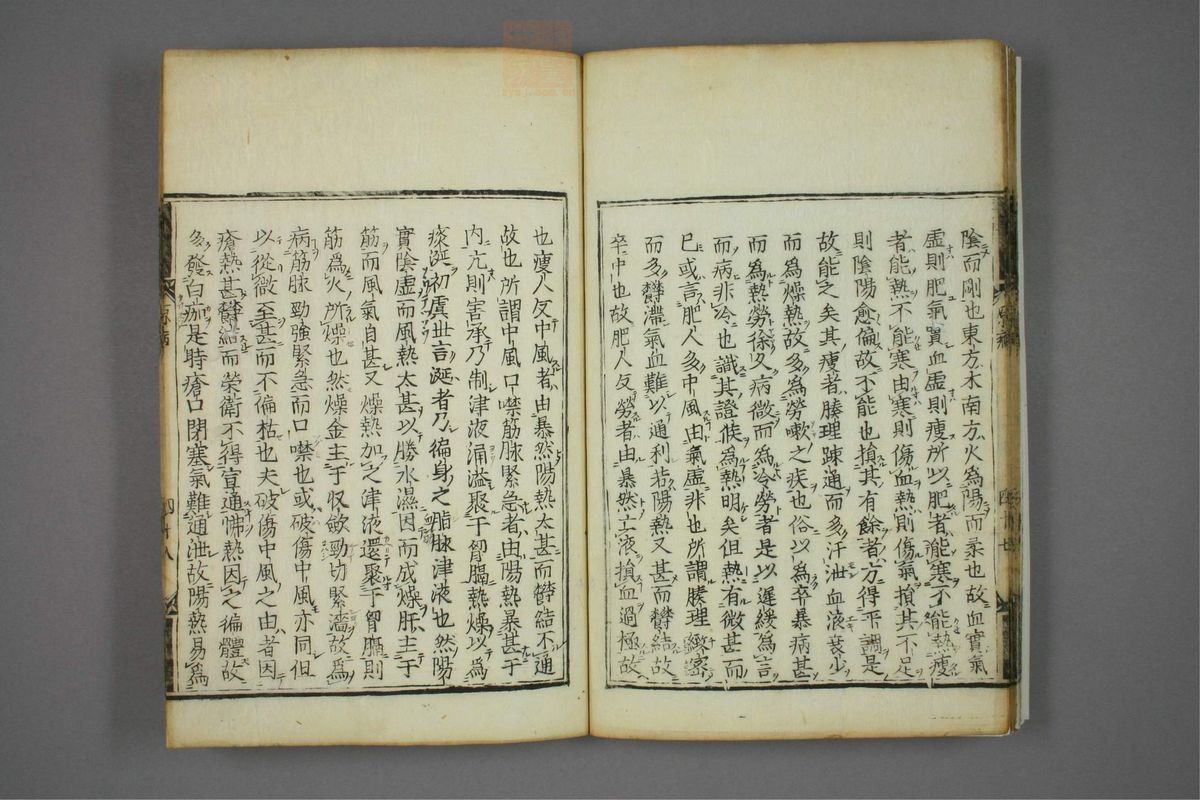 陰而剛也東方木南方火為陽而柔也故血實氣
虛則肥氣實血虛則瘦所以肥者能寒不能熱瘦
者能熱不能寒由寒則傷血熱則傷氣損其不足
則陰陽愈偏故不能也損其有餘者方得平調是
故能之矣其瘦者腠理踈通而多汗泄血液衰少
而為燥熱故多為勞嗽之疾也俗以為卒暴病甚
而為熱勞徐久病微而為冷勞者是以遲緩為言
而病非冷也識其證候為熱明矣但熱有微甚而
已或言肥人多中風由氣虛非也所謂腠理緻密
而多欝滯氣血難以通利若陽熱又甚而欝結故
卒中也故肥人反勞者由暴然亡液損血過極故
也瘦人反中風者由暴然陽熱太甚而欝結不通
故也所謂中風口噤筋脉緊急者由陽熱暴甚于
内亢則害承乃制津液涌溢聚于胷膈熱燥以為
痰涎初虞世言涎者乃徧身之脂脉津液也然陽
實陰虛而風熱太甚以勝水濕因而成燥肝主于
筋而風氣自甚又燥熱加之津液還聚于胷膈則
筋為火所燥也然燥金主于收斂勁切緊濇故為
病筋脉勁強緊急而口噤也或破傷中風亦同但
以從微至甚而不偏枯也夫破傷中風之由者因
瘡熱甚欝結而荣衛不得宣通怫熱因之徧體故
多發白痂是時瘡口閉塞氣難通泄故陽熱易為
四十八